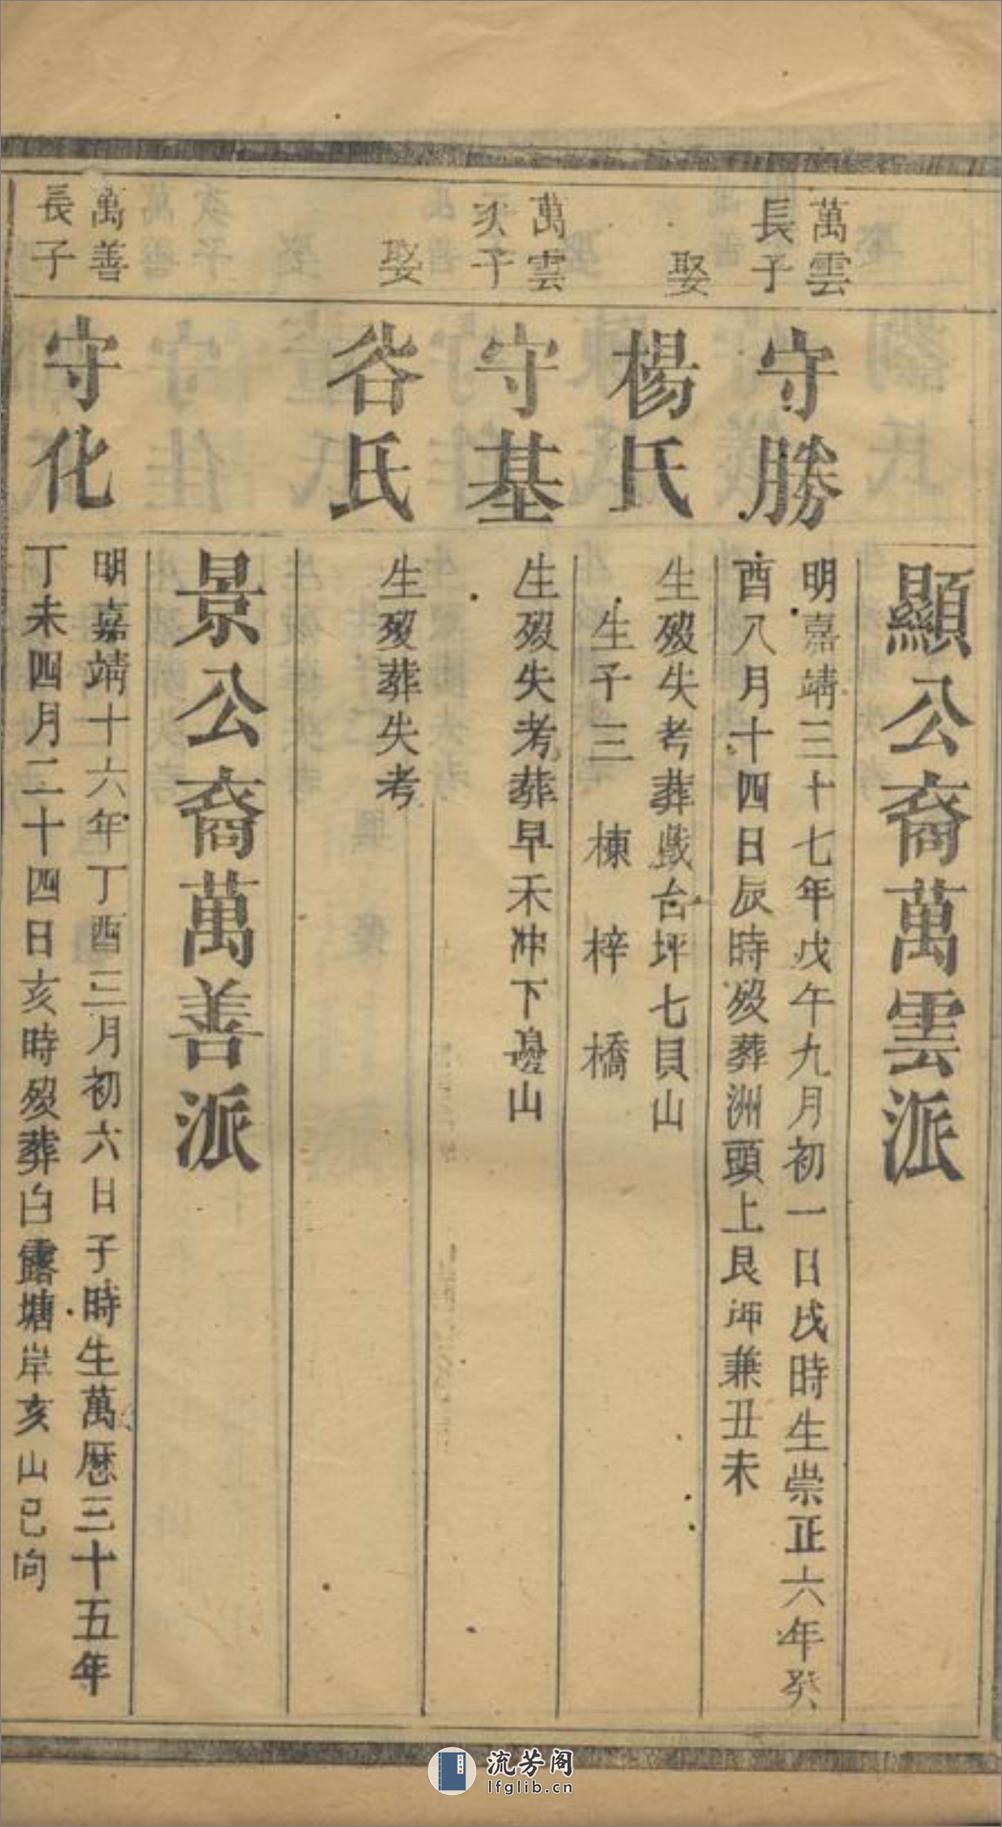 顯公裔萬雲派
萬雲
長子
守勝
明嘉靖三十七年戊午九月初一日戌時生崇正六年癸
酉八月十四日辰時歿葬洲頭上艮坤兼丑未
娶
楊氏
生歿失考葬戲台坪七貝山
生子三 棟 梓 橋
萬雲
次子
守基
生歿失考葬早禾冲下邊山
娶
谷氏
生歿葬失考
景公裔萬善派
萬善
長子
守化
明嘉靖十六年丁酉三月初六日子時生萬歷三十五年
丁未四月二十四日亥時歿葬白露塘岸亥山巳向
流芳阁
lfglib.cn